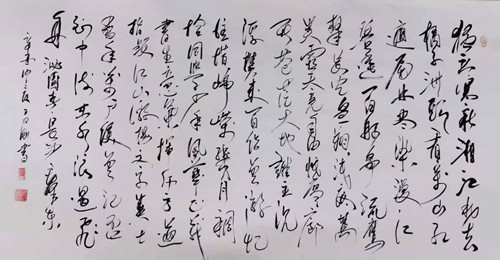 独立寒秋湘江北去
橘子洲头看万山红
遍层林尽染漫江
碧透百舸争流鹰
击长空鱼翔浅底万
类霜天竞自由怅寥廓
问苍茫大地谁主沉
浮携来百侣曾游忆
往昔峥嵘岁月稠
恰同学少年风华正茂
书生意气挥斥方遒
指点江山激扬文字粪土
当年万户侯曾记否
到中流击水浪遏飞
舟 沁园春长沙
辛丑 书